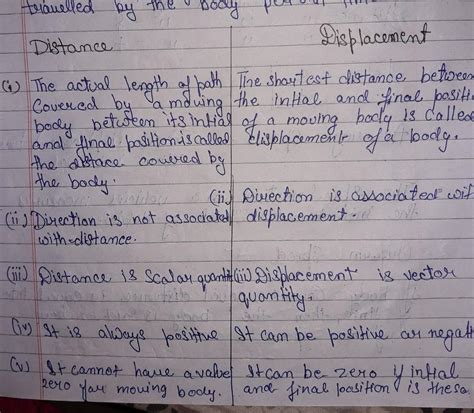 travelled by the body per
Distance
Displacement
(i) The actual length of path
covered by a moving
body between its intial
and final position is called
the distace covered by
the body.
The shortest distance between
the intial and final positi
of a moving body is called
displacement of a body.
(ii) Direction is not associated
with distance.
(ii) Direction is associated wit
displacement.
(iii) Distance is scalar quantit
(iii) Displacement is vector
quantity.
(iv) It is always positive
It can be positive or negati
(v) It cannot have a value
zero for moving body.
It can be zero if intial
and final position is the sa